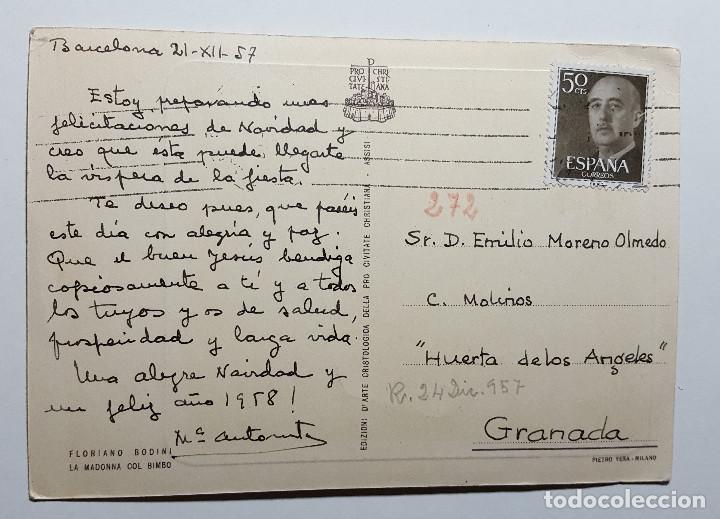 Barcelona 21-XII-57
Estoy preparando unas
felicitaciones de Navidad y
creo que ésta puede llegarte
la víspera de la fiesta.
Te deseo pues, que paséis
este día con alegría y paz.
Que el buen Jesús bendiga
copiosamente a tí y a todos
los tuyos y os de salud,
prosperidad y larga vida.
Una alegre Navidad y
un feliz año 1958!
Mª Antonieta
FLORIANO BODINI
LA MADONNA COL BIMBO
P
PRO CHRI
CIVI STI
TATE ANA
EDIZIONI D'ARTE CRISTOLOGICA DELLA PRO CIVITATE CHRISTIANA - ASSISI
50 CTS
ESPAÑA
CORREOS
272
Sr. D. Emilio Moreno Olmedo
C. Molinos
"Huerta de los Angeles"
R. 24 Dic. 957
Granada
PIETRO VERA - MILANO
todocoleccion